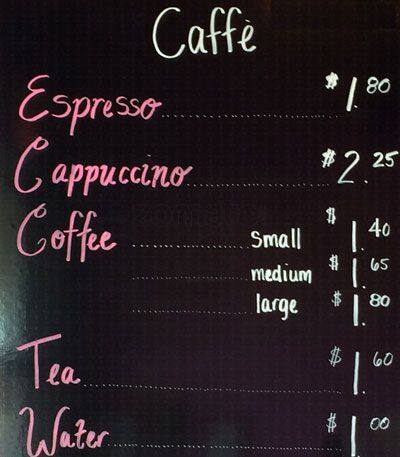 Caffè
Espresso $1.80
Cappuccino $2.25
Coffee small $1.40
medium $1.65
large $1.80
Tea $1.60
Water $1.00